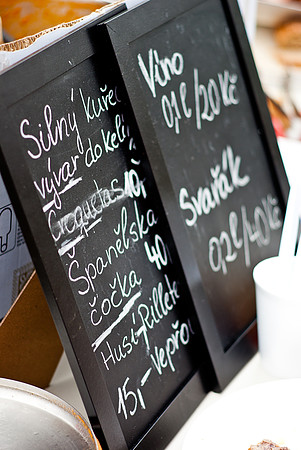 Silný kuře
vývar do kelí
Croquetas 10,-
Španělska
čočka 40,
Husí Rillete
15,- Vepřo
Víno
0,1l/20Kč
Svařák
0,2l/40Kč